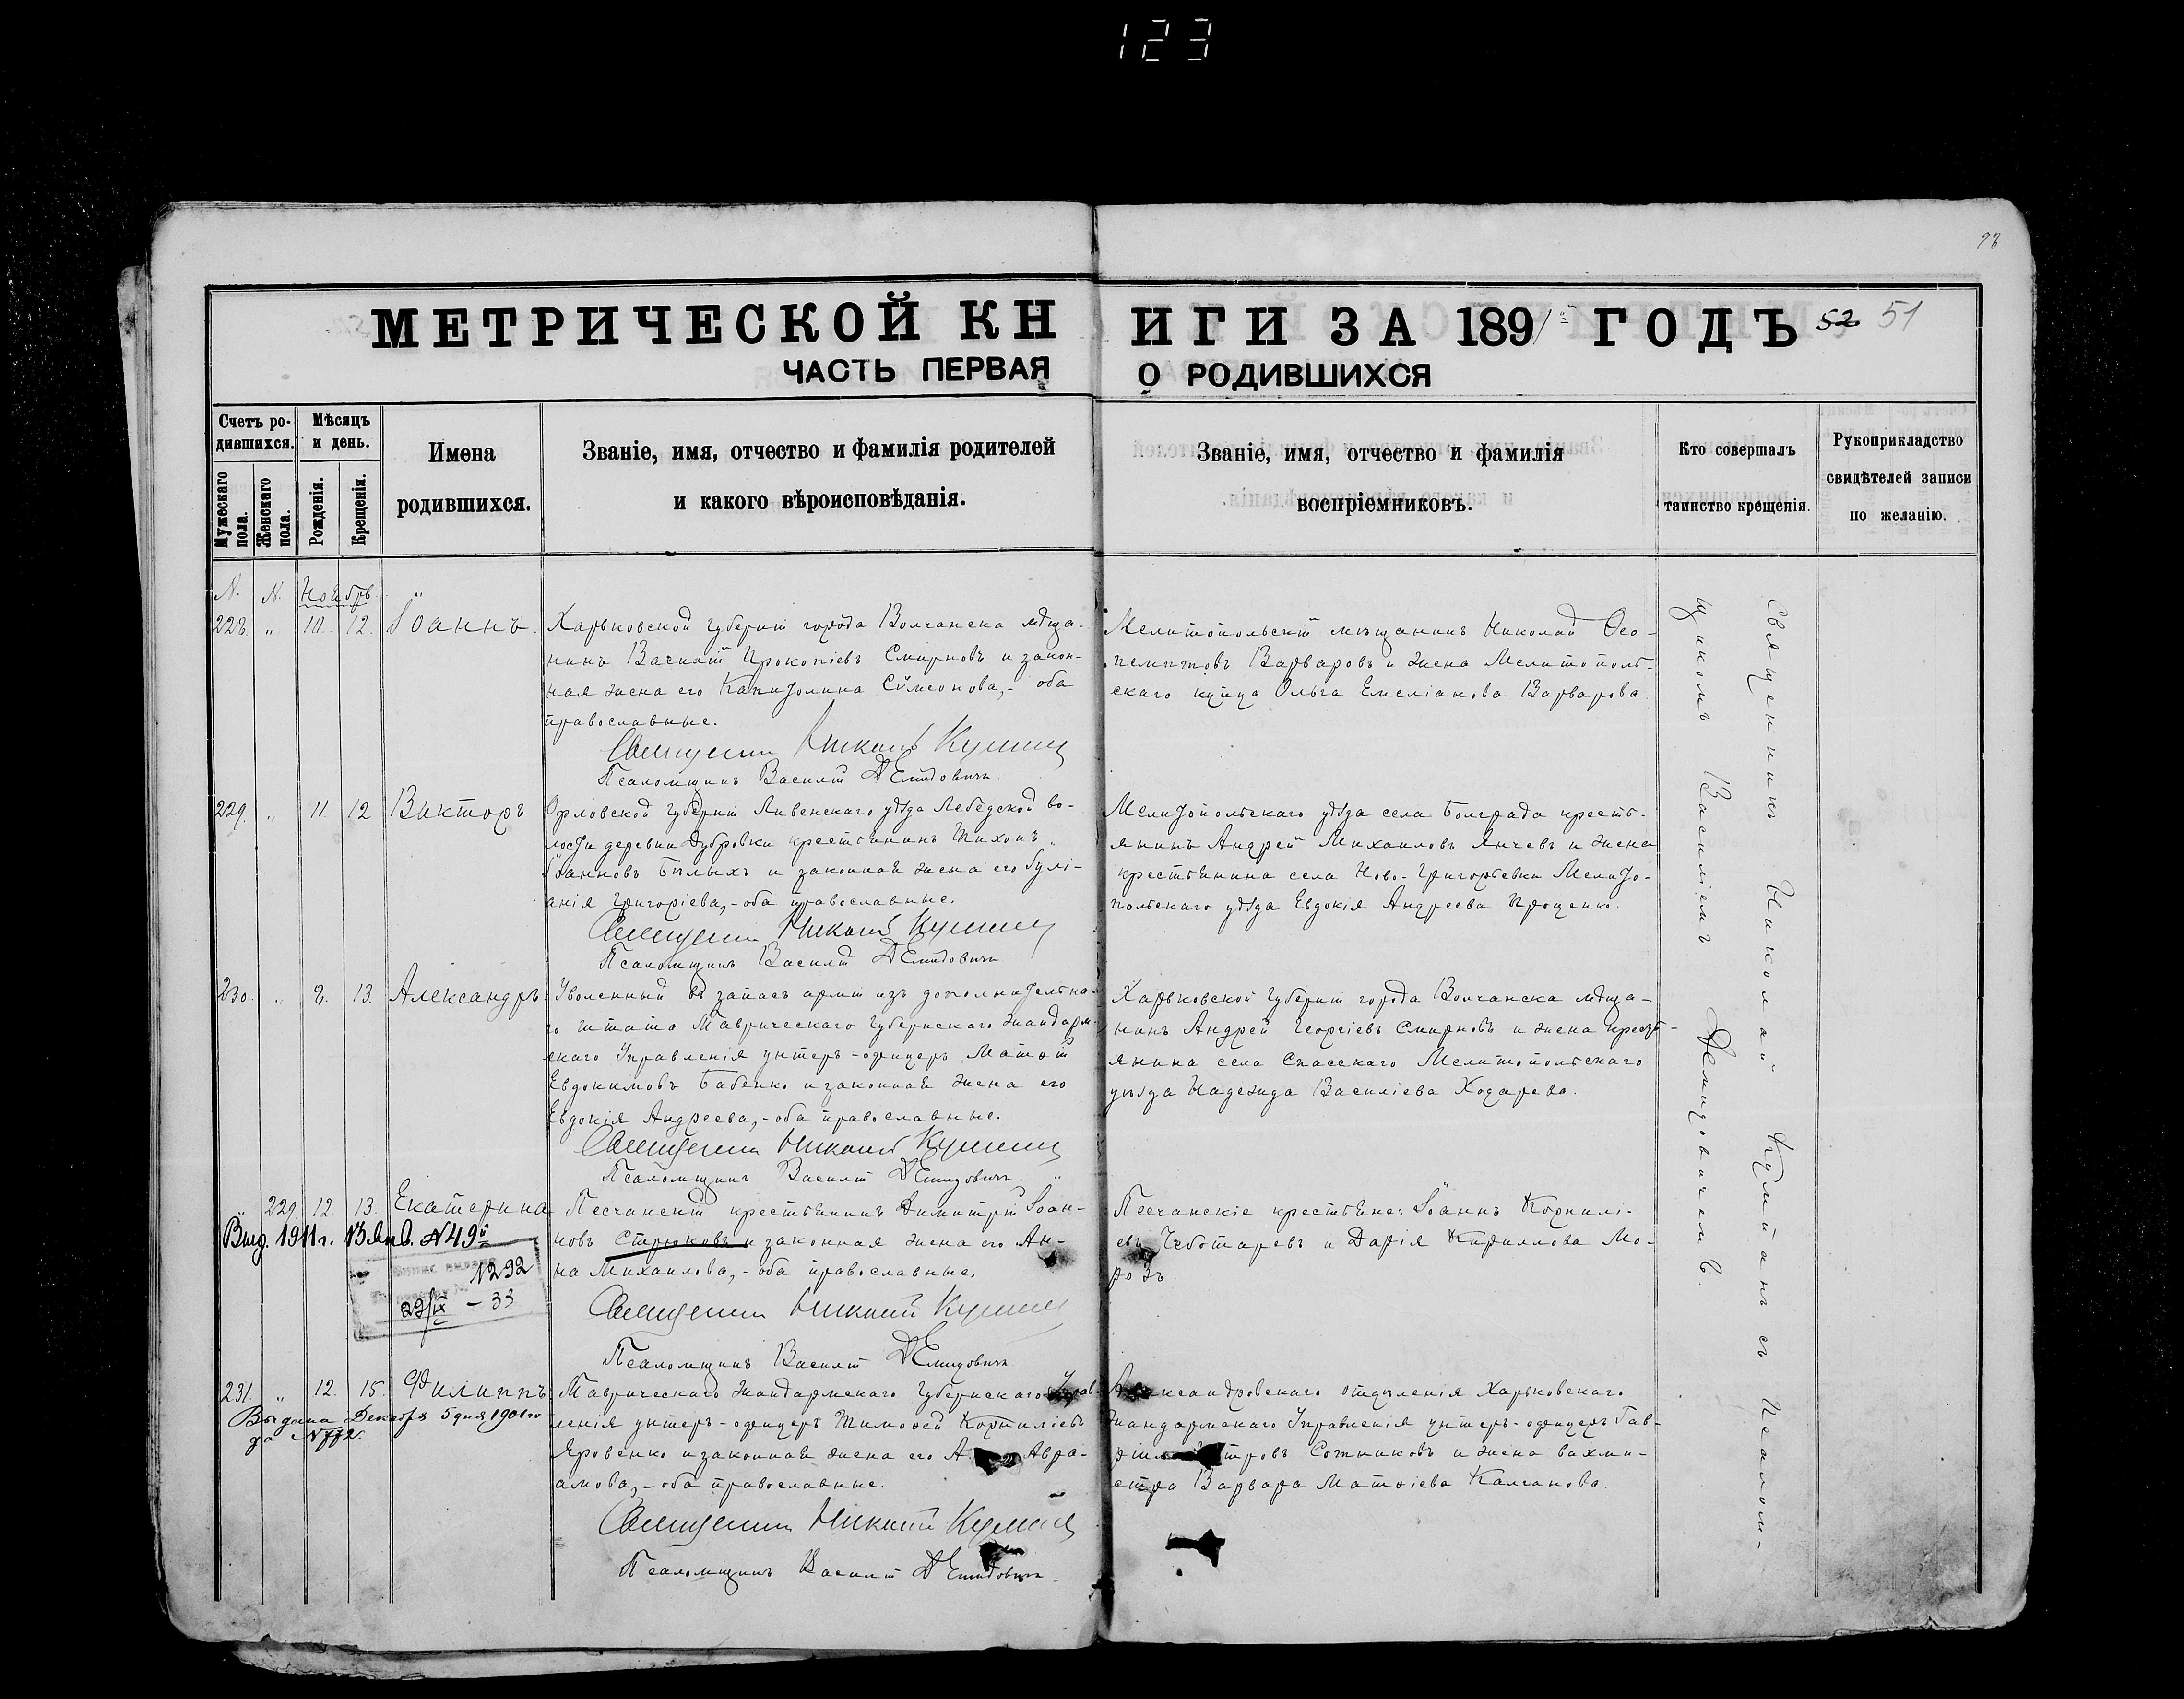 123
98
МЕТРИЧЕСКОЙ КНИГИ ЗА 1891 ГОДЪ 52 51
ЧАСТЬ ПЕРВАЯ О РОДИВШИХСЯ
Счетъ родившихся.
Мужескаго пола.
Женскаго пола.
Мѣсяцъ и день.
Рожденія.
Крещенія.
Имена
родившихся.
Званіе, имя, отчество и фамилія родителей
и какого вѣроисповѣданія.
Званіе, имя, отчество и фамилія
воспріемниковъ.
Кто совершалъ
таинство крещенія.
Рукоприкладство
свидѣтелей записи
по желанію.
N. N. Ноябрь
228. " 10. 12. Іоаннъ.
Харьковской губерніи города Волчанска мѣща-
нинъ Прокопіевъ Смирновъ и закон-
ная жена его Капитолина Сѵмеонова,- оба
православные.
Священникъ Николай
Псаломщикъ Василій Демидовичъ.
Мелитопольскій мѣщанинъ Николай Ѳео-
пемптовъ Варваровъ и жена Мелитополь-
скаго купца Ольга Емеліанова Варварова.
229. " 11. 12 Викторъ
Орловской губерніи Ливенскаго уѣзда Лебедской во-
лости деревни Дубровки крестьянинъ Тихонъ
Іоанновъ Бѣлыхъ и законная жена его Іулі-
анія Григоріева,- оба православные.
Священникъ Николай
Псаломщикъ Василій Демидовичъ
Мелитопольскаго уѣзда села Болграда кресть-
янинъ Андрей Михаиловъ Янчевъ и жена
крестьянина села Ново-Григорьевки Мелито-
польскаго уѣзда Евдокія Андреева Проценко.
230. " 8. 13. Александръ.
Уволенный въ запасъ арміи изъ дополнительна-
го штата Таврическаго Губернскаго Жандарм-
скаго Управленія унтеръ-офицеръ Матѳій
Евдокимовъ Бабенко и законная жена его
Евдокія Андреева,- оба православные.
Священникъ Николай
Псаломщикъ Василій Демидовичъ.
Харьковской губерніи города Волчанска мѣща-
нинъ Андрей Георгіевъ Смирновъ и жена кресть-
янина села Спасскаго Мелитопольскаго
уѣзда Надежда Василіева Ходарева.
" 229. 12. 13. Екатерина
Песчанскій крестьянинъ Димитрій Іоан-
новъ Стрюковъ и законная жена его Ан-
на Михаилова,- оба православные.
Священникъ Николай
Псаломщикъ Василій Демидовичъ.
Песчанскіе крестьяне: Іоаннъ Корнилі-
евъ Чеботаревъ и Дарія Кириллова Мо-
розъ.
Выд. 1911 г. 13 Янв. N 49
N 292
29/IX – 33
231. " 12. 15. Филиппъ
Таврическаго Жандармскаго Губернскаго Управ-
ленія унтеръ-офицеръ Тимоѳей Корниліевъ
Яровенко и законная жена его А Авра-
амова,- оба православные.
Священникъ Николай
Псаломщикъ Василій Демидовичъ.
Александровскаго отдѣленія Харьковскаго
Жандармскаго Управленія унтеръ-офицеръ Гав-
тровъ Сотниковъ и жена вахми-
стра Варвара Матѳіева Калганова.
Выдана Декабря 5 дня 1901 го-
да N
Священникъ Николай съ Псалом-
щикомъ Василіемъ Демидовичемъ.